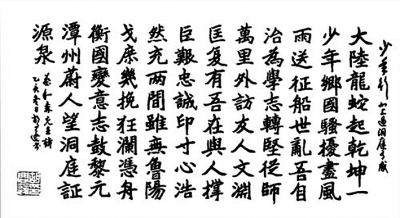 少年行 北上過洞庭有感
大陸龍蛇起乾坤一
少年鄉國騷擾盡風
雨送征船世亂吾自
治為學志轉堅從師
萬里外訪友人文淵
匡复有吾在與人撐
巨艱忠誠印寸心浩
然充两間雖無魯陽
戈庶幾挽狂瀾憑舟
衡國變意志鼓黎元
潭州蔚人望洞庭証
源泉
蔡和森先生詩